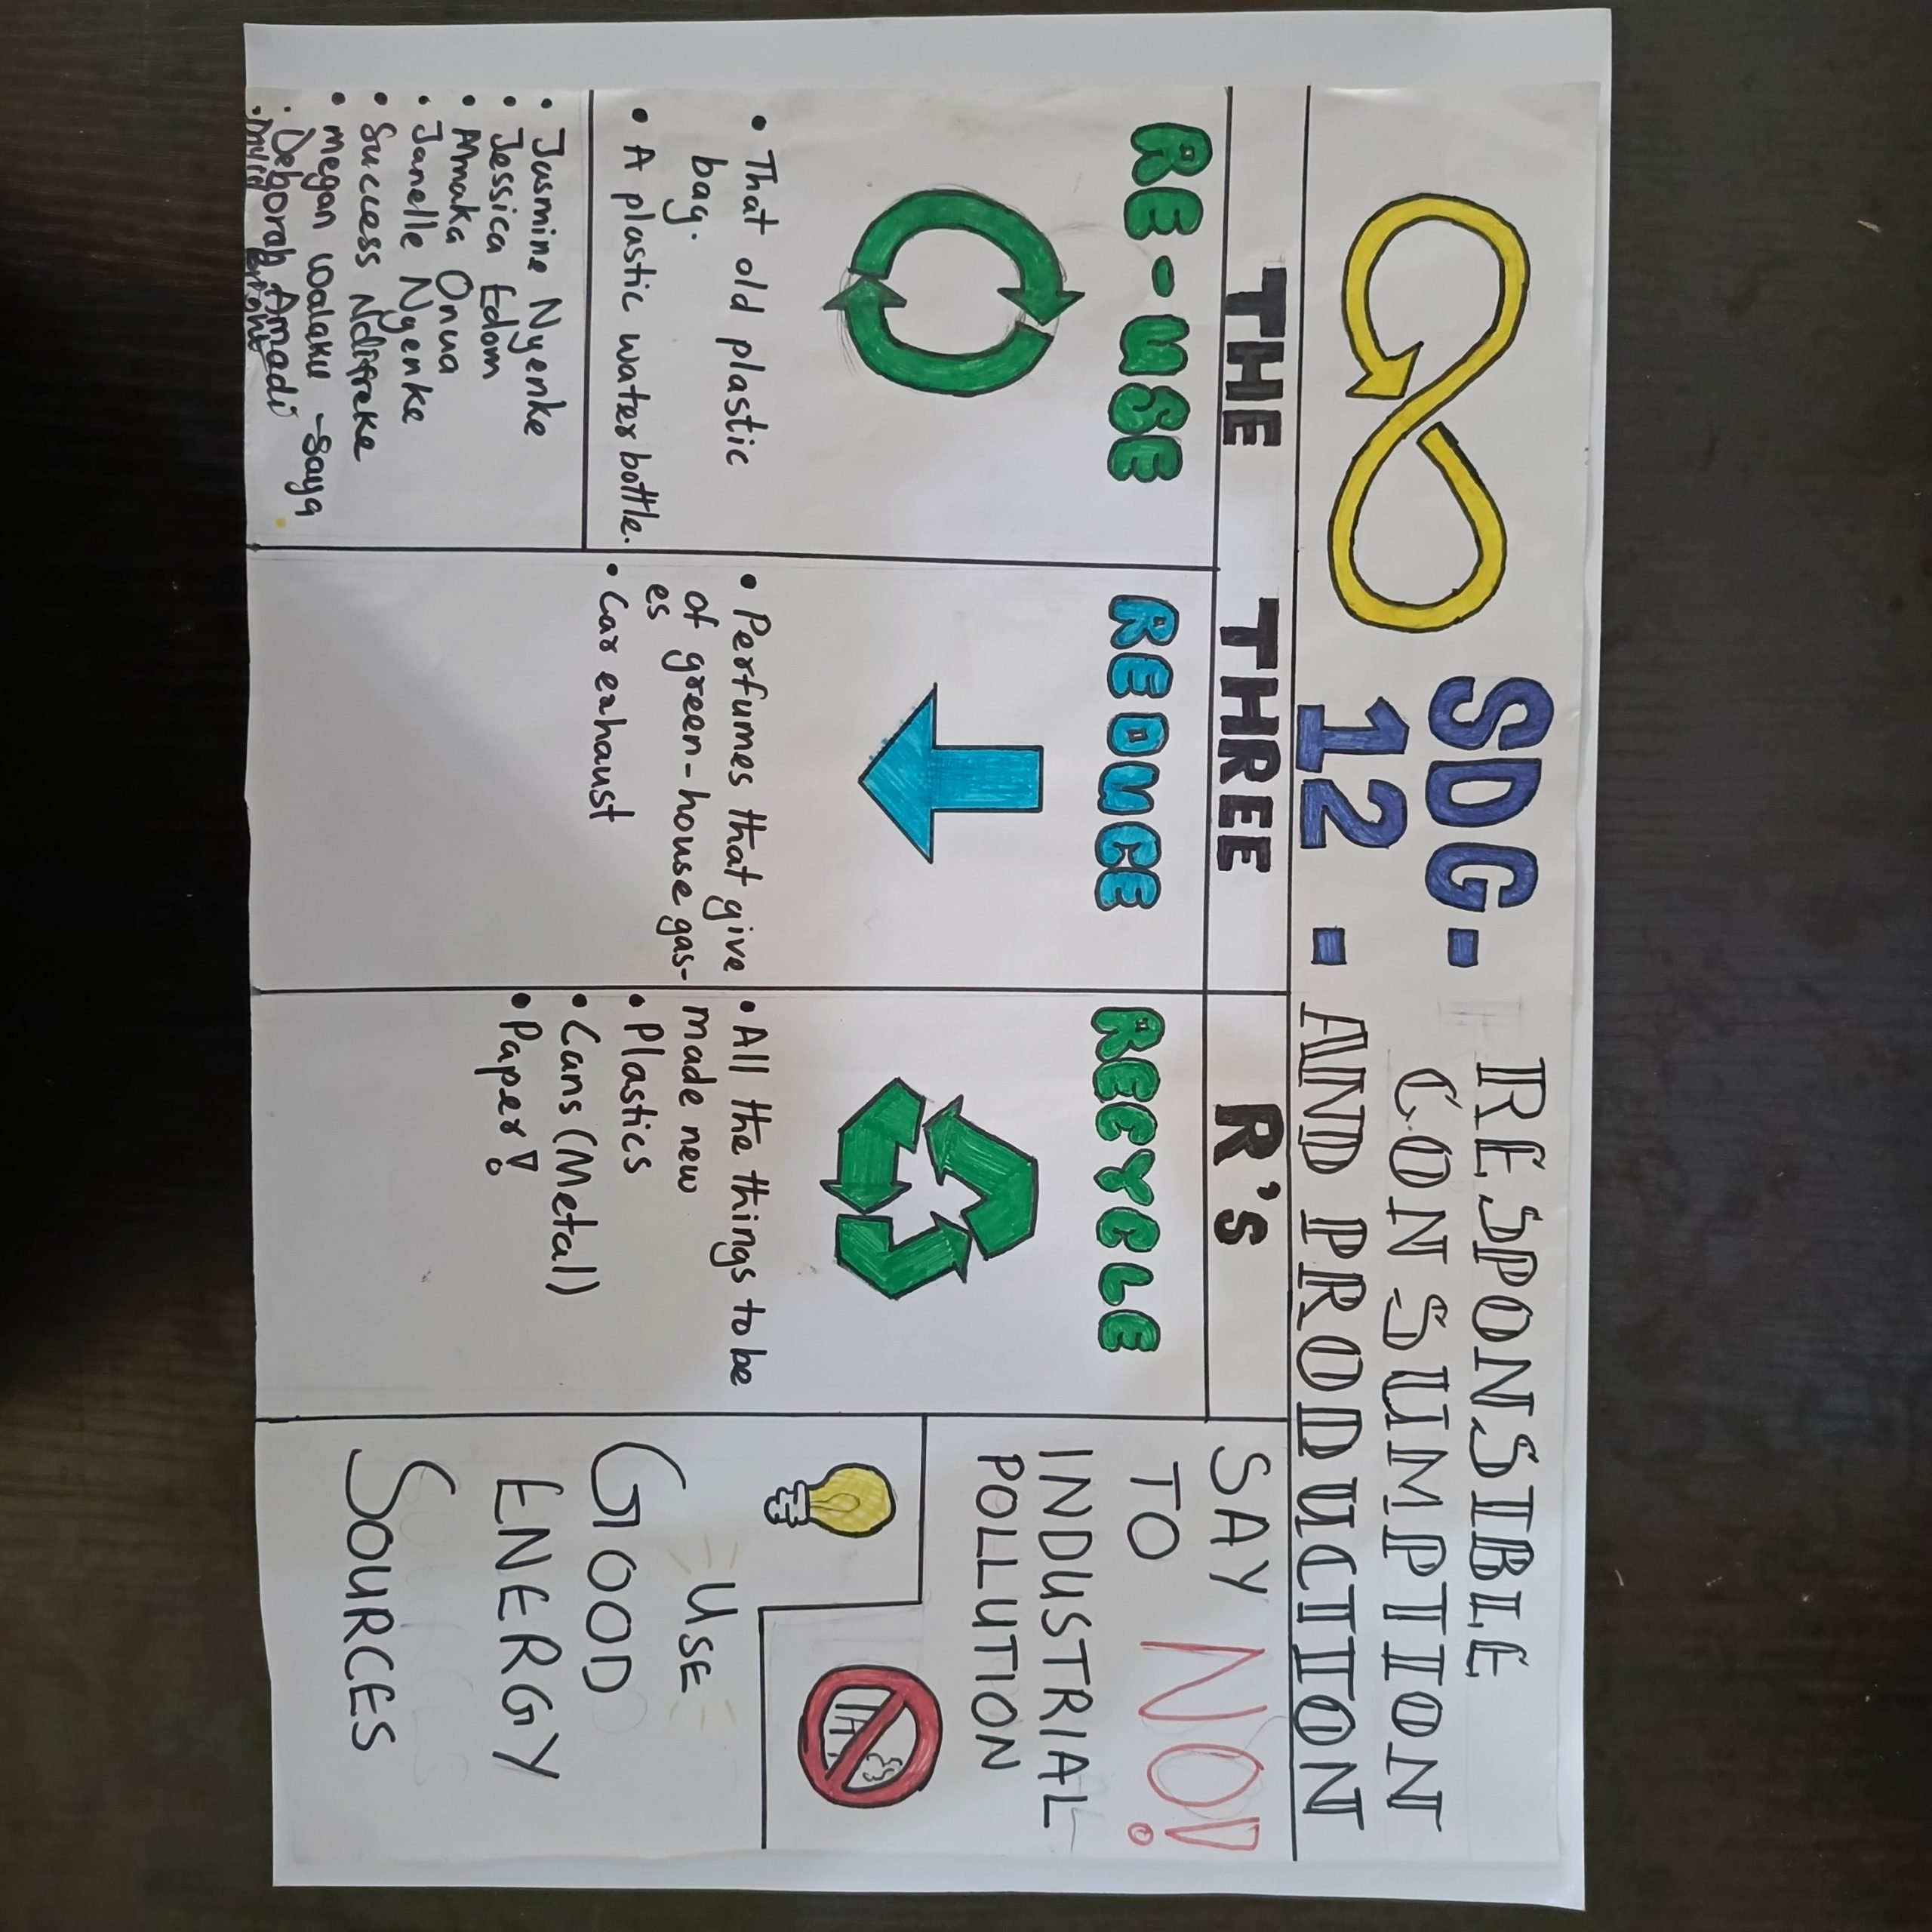 SDG- RESPONSIBLE
12 - CONSUMPTION
AND PRODUCTION
THE THREE R's
RE-USE
• That old plastic
bag.
• A plastic water bottle.
• Jasmine Nyenke
• Jessica Edom
• Amaka Onua
• Janelle Nyenke
• Success Ndifreke
• megan woaluku -Saya
• Deborah Amadi
REDUCE
• Perfumes that give
of green-house gas-
es
• Car exhaust
RECYCLE
• All the things to be
made new
• Plastics
• Cans (Metal)
• Paper!
SAY NO!
TO
INDUSTRIAL
POLLUTION
USE
GOOD
ENERGY
SOURCES